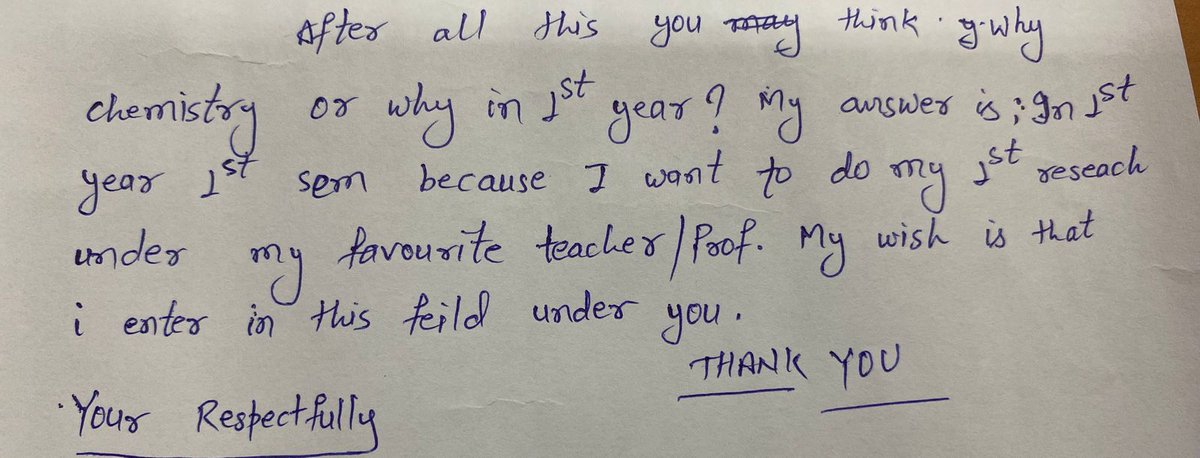 After all this you may think . y. why
chemistry or why in 1st year? My answer is ; In 1st
year 1st sem because I want to do my 1st reseach
under my favourite teacher/Prof. My wish is that
i enter in this feild under you.
THANK YOU
Your Respectfully